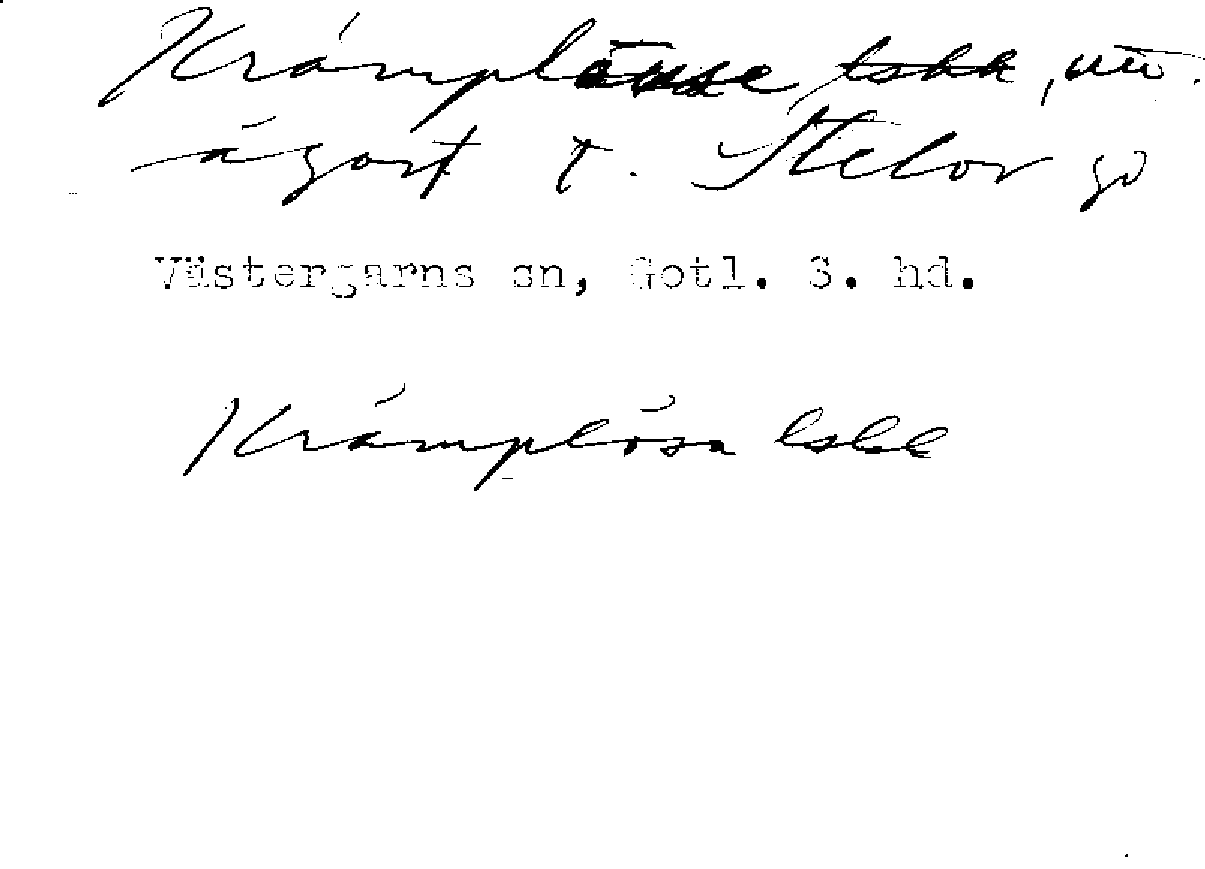 Krámplause tskk, utv.
ägort t. Stelor gd
Västergarns sn, Gotl. S. hd.
Krámplösa tskk